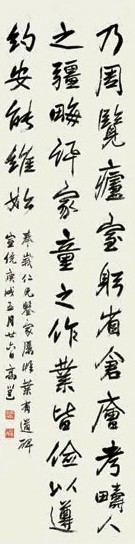 乃周覽廬室躬省倉廥考疇人
之疆畮評家童之作業皆儉以遵
約安能維始
仁兄鑒家屬臨葉有道碑
宣統庚戌五月廿六日高邕